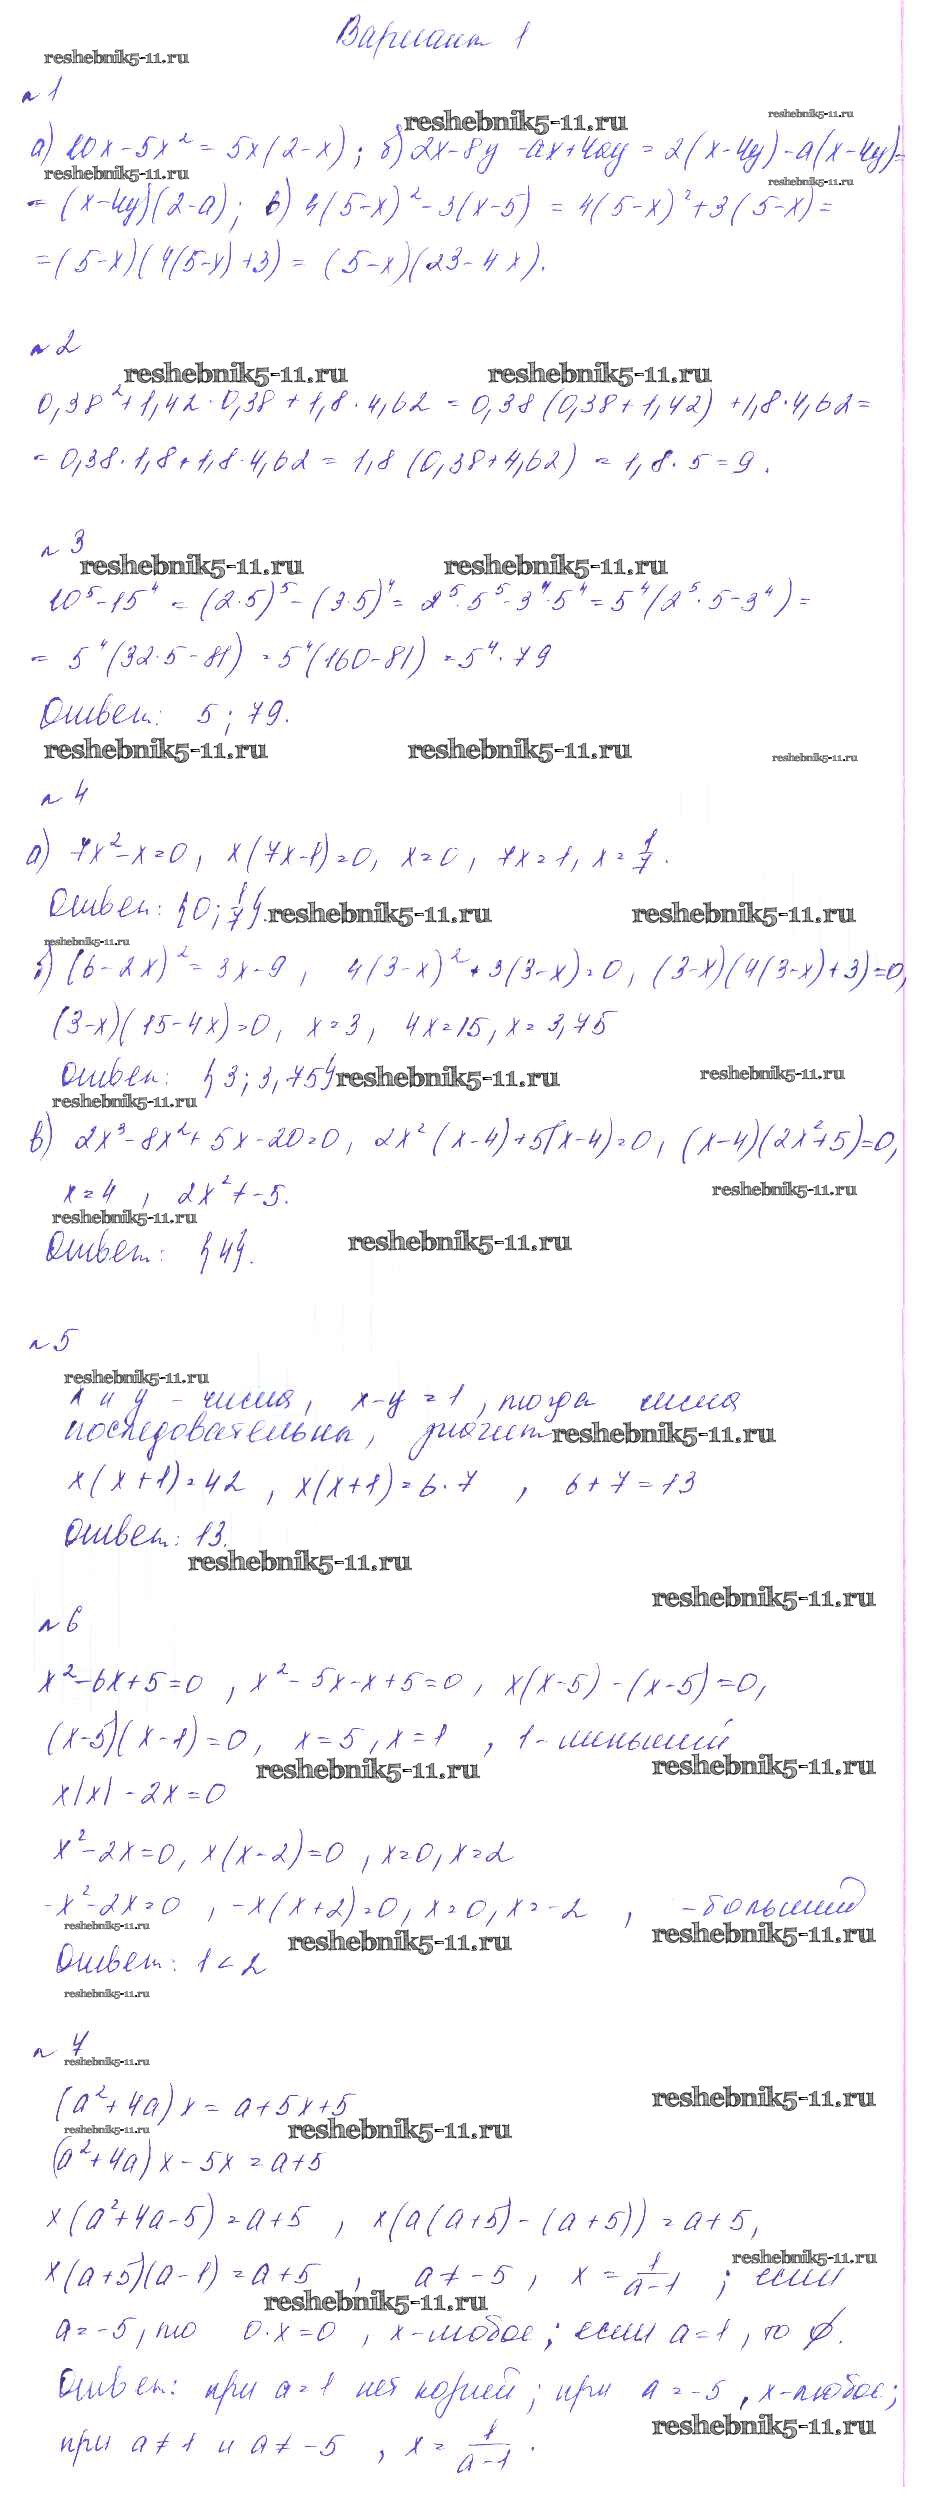 Вариант 1
reshebnik5-11.ru
№1
reshebnik5-11.ru reshebnik5-11.ru
а) 10x - 5x² = 5x(2-x); б) 2x - 8y - ax + 4ay = 2(x-4y) - a(x-4y) =
reshebnik5-11.ru reshebnik5-11.ru
= (x-4y)(2-a); в) 4(5-x)² - 3(x-5) = 4(5-x)² + 3(5-x) =
= (5-x)(4(5-x)+3) = (5-x)(23-4x).
№2
reshebnik5-11.ru reshebnik5-11.ru
0,38² + 1,42·0,38 + 1,8·4,62 = 0,38(0,38+1,42) + 1,8·4,62 =
= 0,38·1,8 + 1,8·4,62 = 1,8(0,38+4,62) = 1,8·5 = 9.
№3
reshebnik5-11.ru reshebnik5-11.ru
10⁵ - 15⁴ = (2·5)⁵ - (3·5)⁴ = 2⁵·5⁵ - 3⁴·5⁴ = 5⁴(2⁵·5 - 3⁴) =
= 5⁴(32·5 - 81) = 5⁴(160-81) = 5⁴·79
Ответ: 5; 79.
reshebnik5-11.ru reshebnik5-11.ru reshebnik5-11.ru
№4
а) 7x² - x = 0, x(7x-1) = 0, x = 0, 7x = 1, x = 1/7.
Ответ: {0; 1/7}. reshebnik5-11.ru reshebnik5-11.ru
reshebnik5-11.ru
б) (6-2x)² = 3x-9, 4(3-x)² + 3(3-x) = 0, (3-x)(4(3-x)+3) = 0,
(3-x)(15-4x) = 0, x = 3, 4x = 15, x = 3,75
Ответ: {3; 3,75} reshebnik5-11.ru reshebnik5-11.ru
reshebnik5-11.ru
в) 2x³ - 8x² + 5x - 20 = 0, 2x²(x-4) + 5(x-4) = 0, (x-4)(2x²+5) = 0,
x = 4, 2x² ≠ -5. reshebnik5-11.ru
reshebnik5-11.ru
Ответ: {4}. reshebnik5-11.ru
№5
reshebnik5-11.ru
x и y - числа, x-y = 1, тогда числа
последовательна, значит reshebnik5-11.ru
x(x+1) = 42, x(x+1) = 6·7, 6+7 = 13
Ответ: 13.
reshebnik5-11.ru
reshebnik5-11.ru
№6
x² - 6x + 5 = 0, x² - 5x - x + 5 = 0, x(x-5) - (x-5) = 0,
(x-5)(x-1) = 0, x = 5, x = 1, 1 - меньший
reshebnik5-11.ru reshebnik5-11.ru
x|x| - 2x = 0
x² - 2x = 0, x(x-2) = 0, x = 0, x = 2
-x² - 2x = 0, -x(x+2) = 0, x = 0, x = -2, - больший
reshebnik5-11.ru reshebnik5-11.ru reshebnik5-11.ru
Ответ: 1 < 2
reshebnik5-11.ru
№7
reshebnik5-11.ru
(a²+4a)x = a+5x+5 reshebnik5-11.ru
reshebnik5-11.ru reshebnik5-11.ru
(a²+4a)x - 5x = a+5
x(a²+4a-5) = a+5, x(a(a+5) - (a+5)) = a+5,
reshebnik5-11.ru
x(a+5)(a-1) = a+5, a ≠ -5, x = 1/(a-1); если
reshebnik5-11.ru
a = -5, то 0·x = 0, x-любое; если a = 1, то ∅.
Ответ: при a = 1 нет корней; при a = -5, x-любое;
reshebnik5-11.ru
при a ≠ 1 и a ≠ -5, x = 1/(a-1).